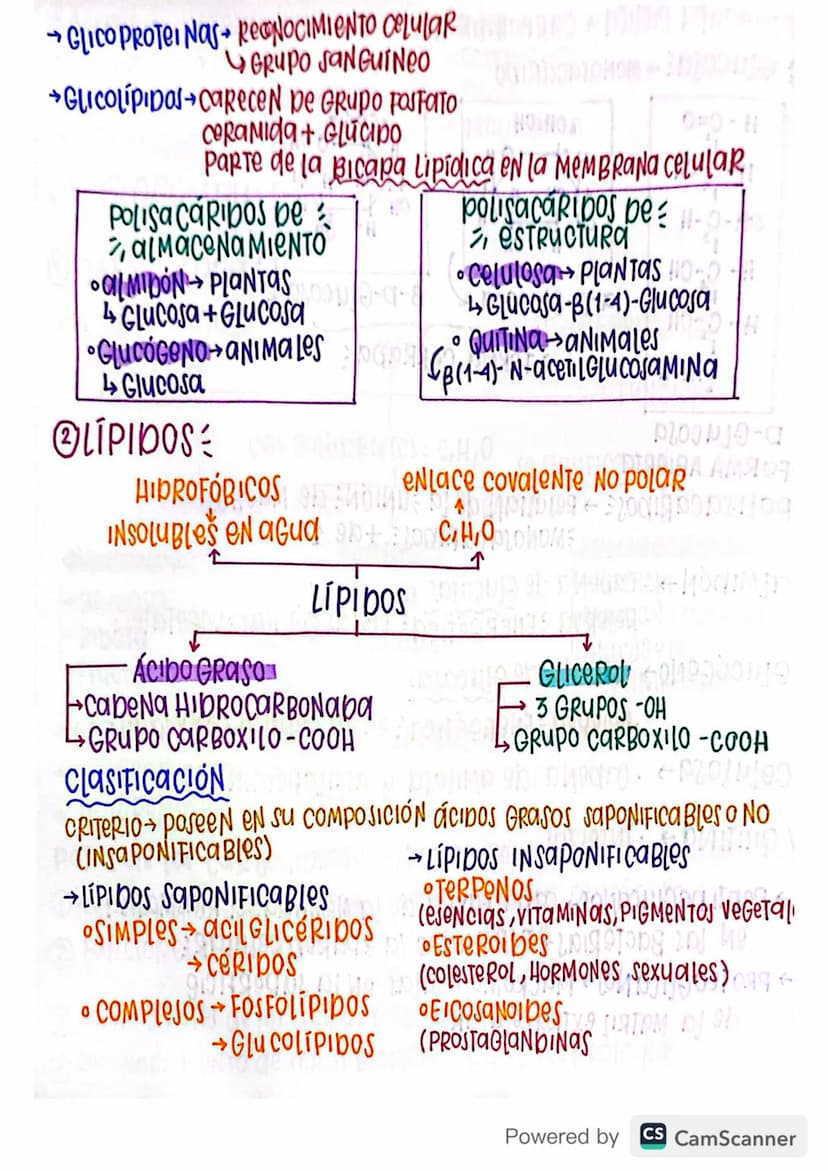 →GLICOPROTEINAS→ RECONOCIMIENTO CELULAR
↳GRUPO SANGUÍNEO
→GLICOLÍPIDOS→CARECEN DE GRUPO FOSFATO
CERAMIDA + GLÚCIDO
PARTE DE LA BICAPA LIPÍDICA EN LA MEMBRANA CELULAR
POLISACÁRIDOS DE
ALMACENAMIENTO
•ALMIDÓN→ PLANTAS
↳GLUCOSA+GLUCOSA
•GLUCÓGENO→ANIMALES
↳GLUCOSA
POLISACÁRIDOS DE
ESTRUCTURA
•CELULOSA→ PLANTAS
↳GLUCOSA-β(1-4)-GLUCOSA
•QUITINA→ANIMALES
β(1-4)-N-ACETILGLUCOSAMINA
②LÍPIDOS:
HIDROFÓBICOS
INSOLUBLES EN AGUA
ENLACE COVALENTE NO POLAR
C,H,O
LÍPIDOS
ÁCIDO GRASO
→CADENA HIDROCARBONADA
→GRUPO CARBOXILO -COOH
GLICEROL
→ 3 GRUPOS -OH
→GRUPO CARBOXILO -COOH
CLASIFICACIÓN
CRITERIO→ POSEEN EN SU COMPOSICIÓN ÁCIDOS GRASOS SAPONIFICABLES O NO
(INSAPONIFICABLES)
→LÍPIDOS SAPONIFICABLES
•SIMPLES→ ACILGLICÉRIDOS
→CÉRIDOS
•COMPLEJOS→FOSFOLÍPIDOS
→GLUCOLÍPIDOS
→LÍPIDOS INSAPONIFICABLES
•TERPENOS
(ESENCIAS, VITAMINAS, PIGMENTOS VEGETAL
•ESTEROIDES
(COLESTEROL, HORMONES SEXUALES)
•EICOSANOIDES
(PROSTAGLANDINAS
Powered by CS CamScanner